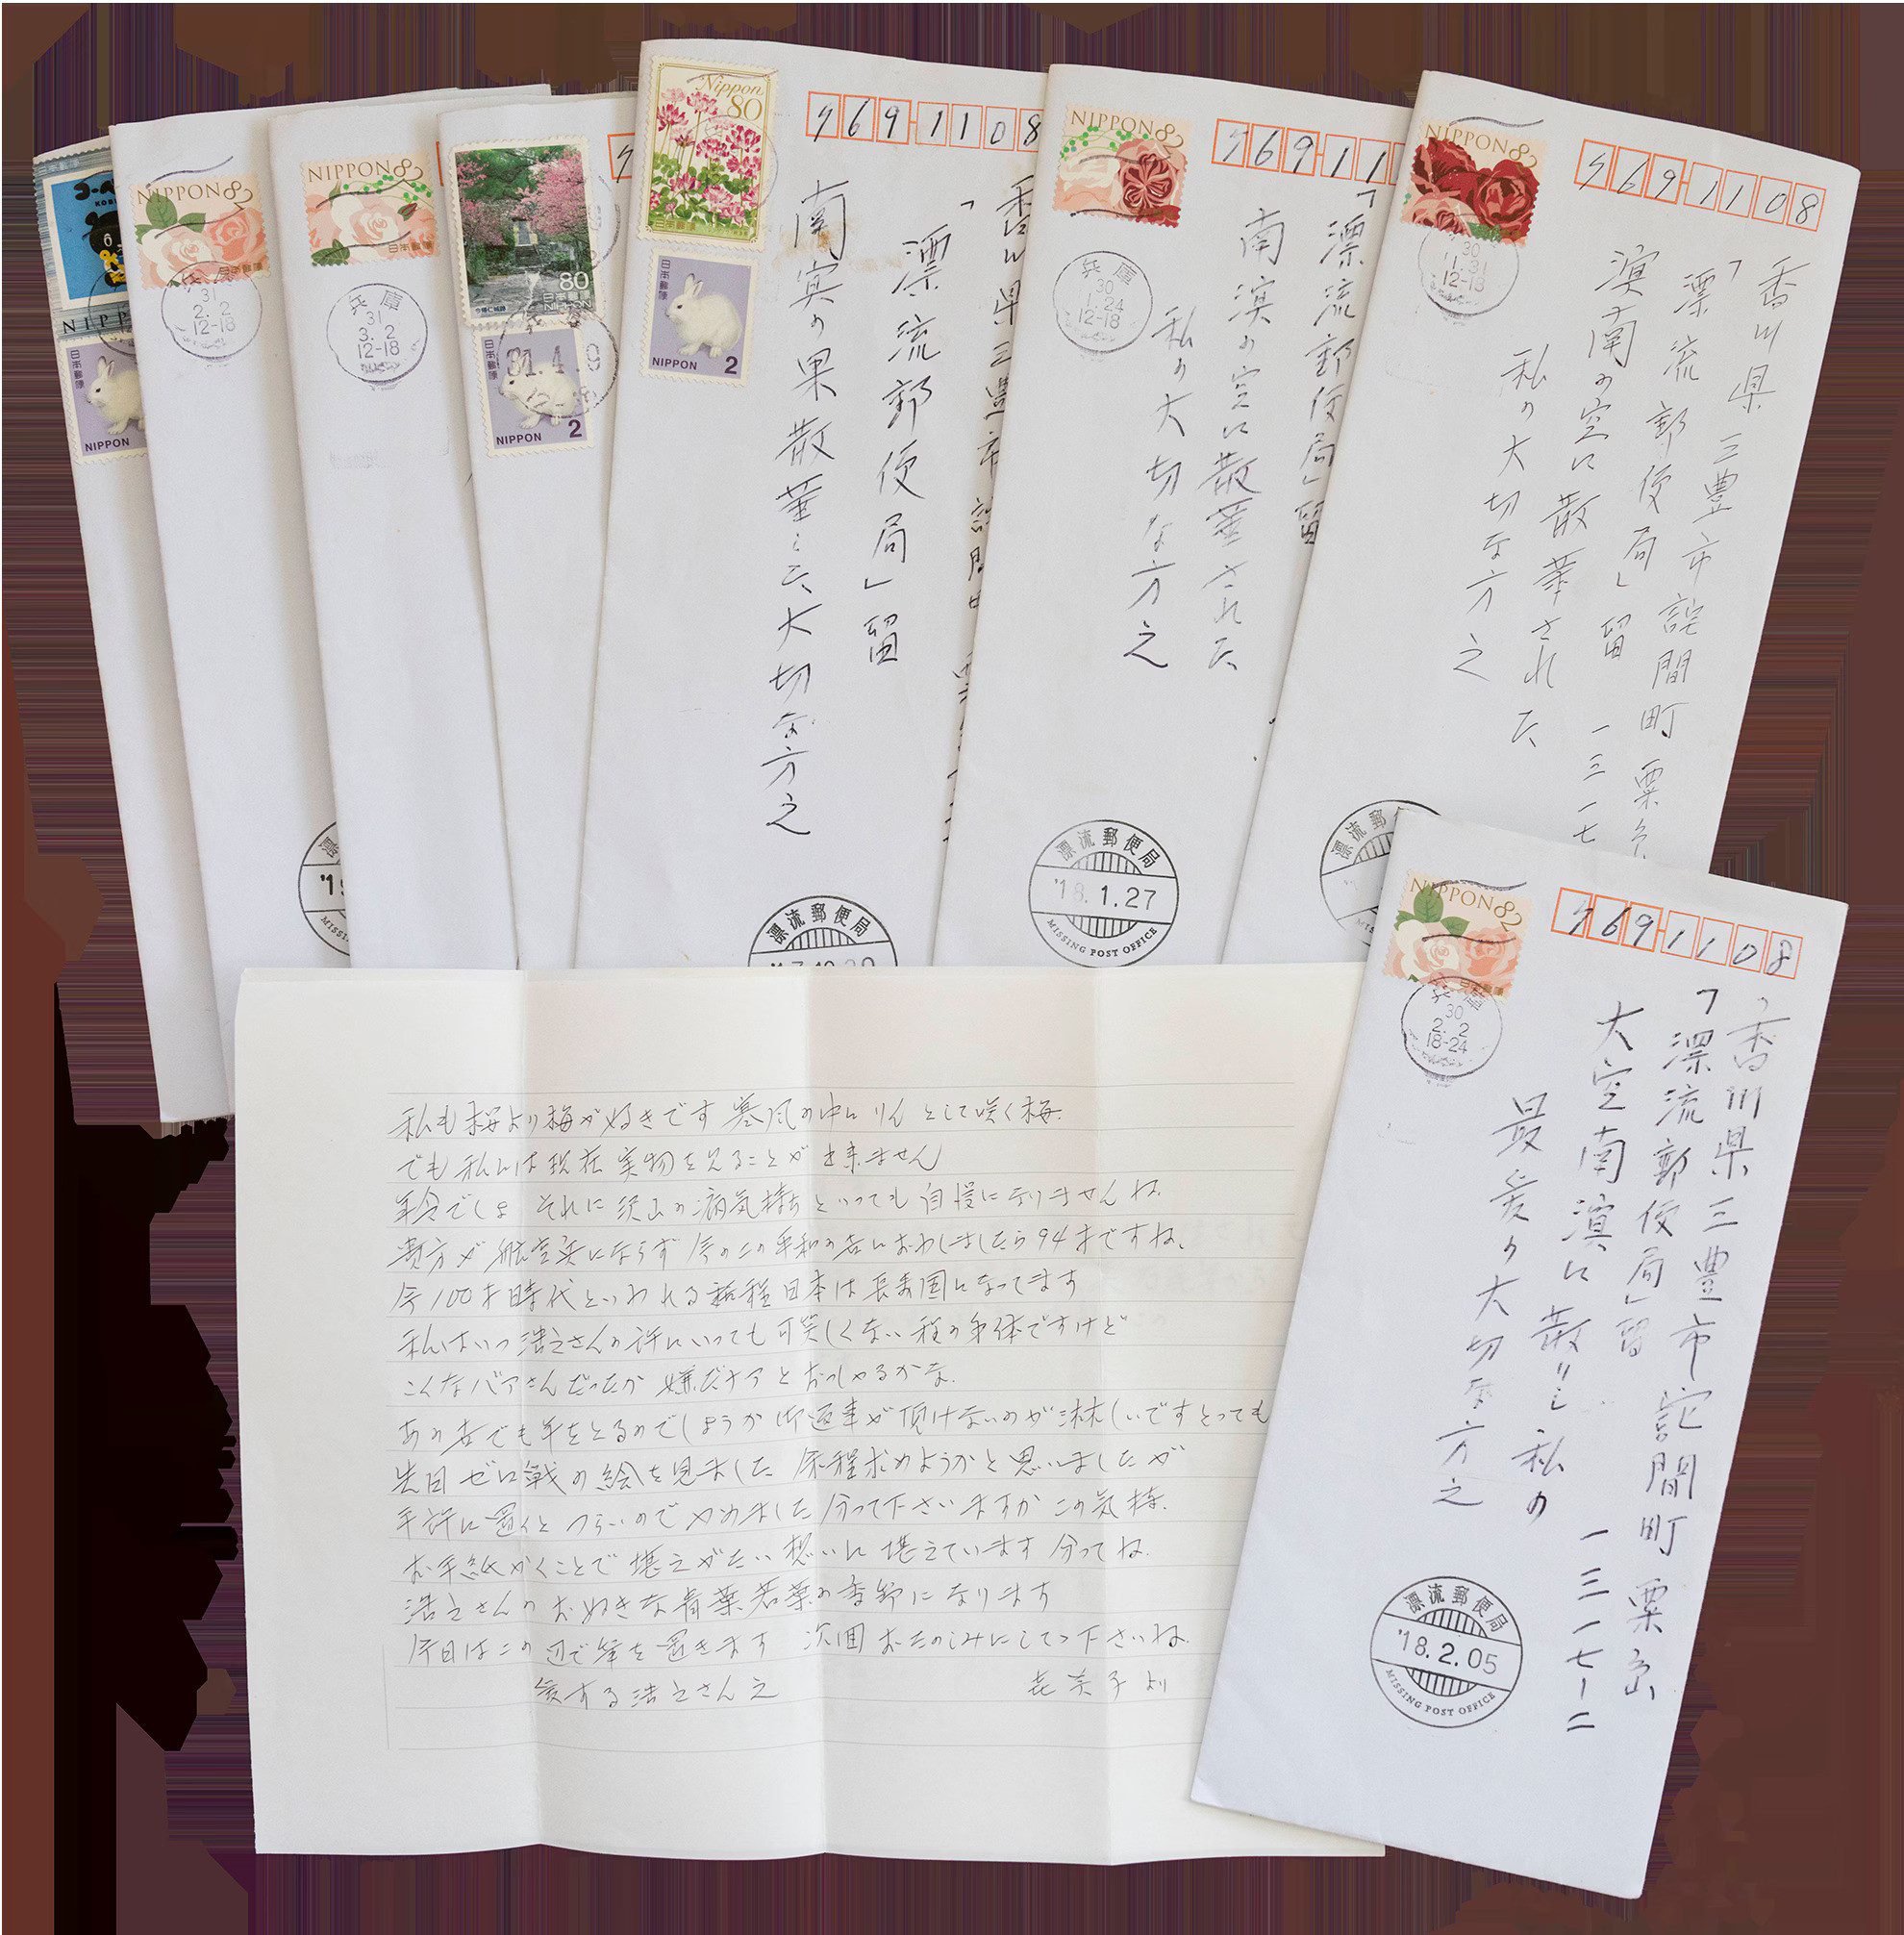 NIPPON
NIPPON 82
兵庫
31
2. 2
12-18
NIPPON 82
日本郵便
兵庫
31
3. 2
12-18
80
日本郵便
NIPPON
31.4.9
日本郵便
NIPPON 2
Nippon
80
日本郵便
日本郵便
NIPPON 2
769-1108
香川県三豊市詫間
「漂流郵便局」留
南寞の果散華した大切な方え
漂流郵便局
NIPPON 82
769-11
兵庫
30
1.24
12-18
「漂流郵便局」留
南溟の空に散華された
私の大切な方え
漂流郵便局
'18.1.27
MISSING POST OFFICE
NIPPON 82
769-1108
30
12-18
香川県三豊市詫間町粟島
「漂流郵便局」留 一三一七
溟南の空に散華された
私の大切な方え
漂流郵
NIPPON 82
日本郵便
769-1108
兵庫
30
2. 2
18-24
香川県三豊市詫間町粟島
「漂流郵便局」留 一三一七ー二
大空南溟に散りし私の
最愛の大切な方え
漂流郵便局
'18.2.05
MISSING POST OFFICE
私も桜より梅が好きです 寒風の中に りんとして咲く梅.
でも私には現在実物を見ることが出来ません
年令でしょ それに沢山の病気持ちといっても自慢になりませんね.
貴方が航空兵にならず 今のこの平和の世におわしましたら94才ですね.
今100才時代といわれる 程日本は長寿国になってます
私はいつ浩之さんの許にいっても可笑しくない程の身体ですけど
こんなバアさんだったか 嫌だナアとおっしゃるかな.
あの世でも年をとるのでしょうか 御返事が頂けないのが淋しいですとっても
先日 ゼロ戦の絵を見ました 余程求めようかと思いましたが
手許に置くと つらいのでやめました 分って下さいますか この気持.
お手紙かくことで 堪えがたい想いに 堪えています 分ってね.
浩之さんのお好きな青葉若葉の季節になります
今日はこの辺で筆を置きます 次回 おたのしみにしてて下さいね.
愛する浩之さんえ
子より